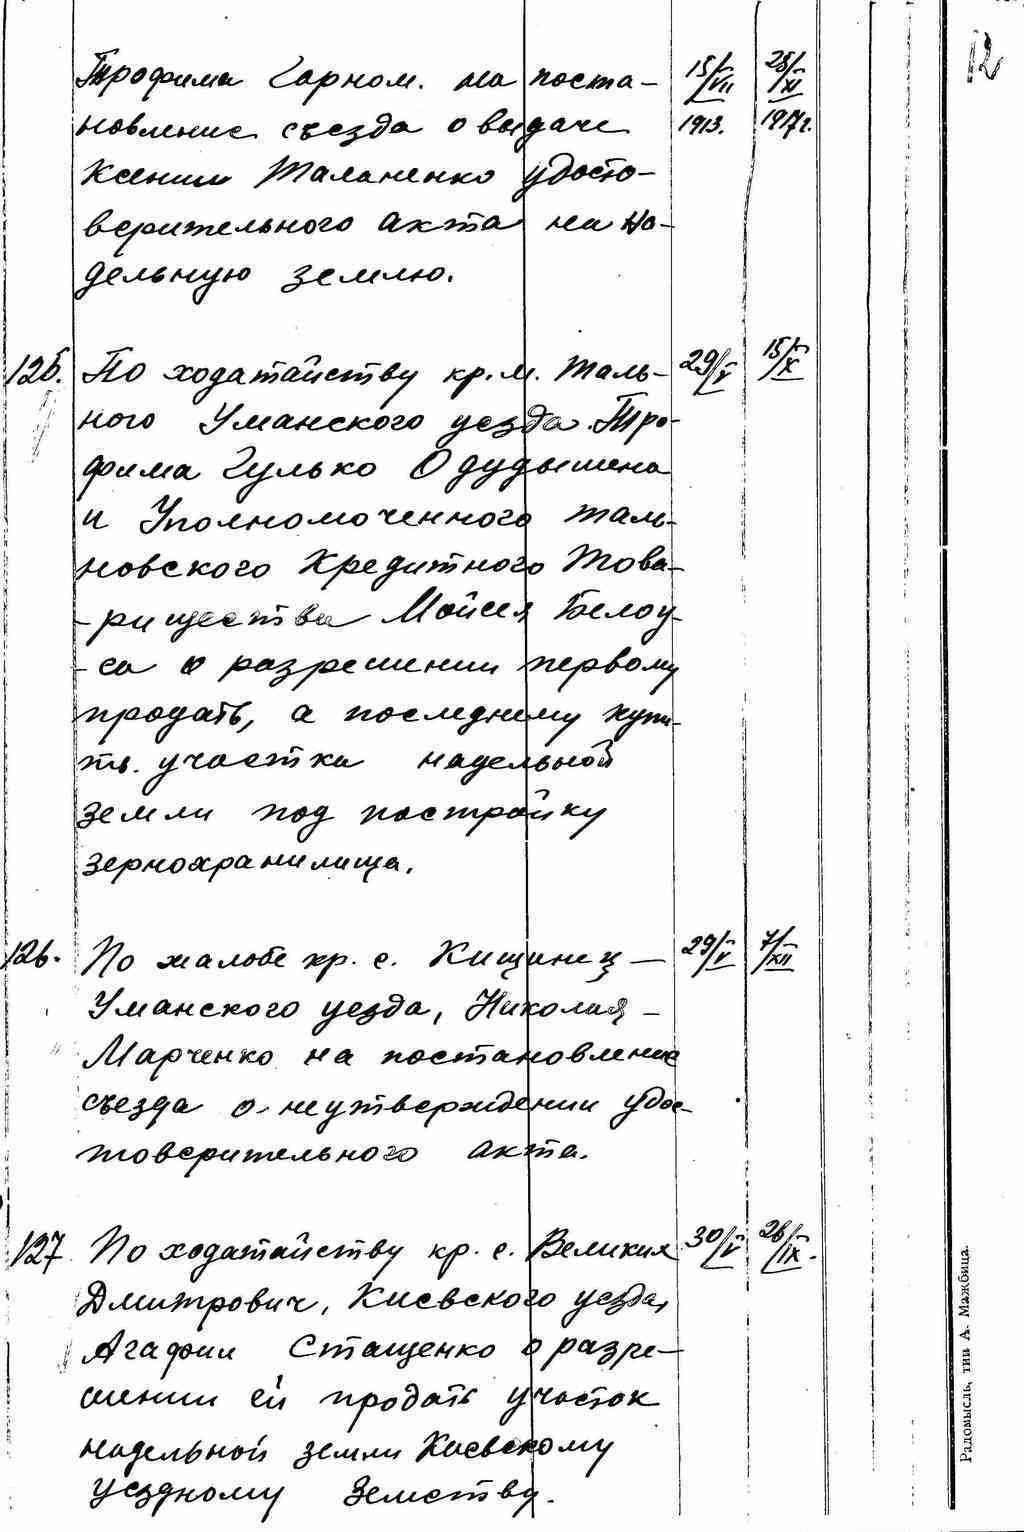 12
Трофима Гарном. на поста- 15/VII 25/XI
новление съезда о выдаче 1913. 1917г.
Ксении Таланенко удосто-
верительного акта на на-
дельную землю.
125. По ходатайству кр. м. Таль- 29/V 15/X
ного Уманского уезда Тро-
фима Гулько Одудышена
и Уполномоченного Таль-
новского Кредитного Това-
-рищества Мойсея Белоу-
-са о разрешении первому
продать, а последнему купи-
ть участка надельной
земли под постройку
зернохранилища.
126. По жалобе кр. с. Кищинец — 29/V 7/XII
Уманского уезда, Николая -
Марченко на постановление
съезда о неутверждении удос-
товерительного акта.
127 По ходатайству кр. с. Великия 30/V 26/IX.
Дмитрович, Киевского уезда,
Агафии Стащенко о разре-
шении ей продать участок
надельной земли Киевскому
Уездному Земству.
Радомысль, тип А. Мажбица.